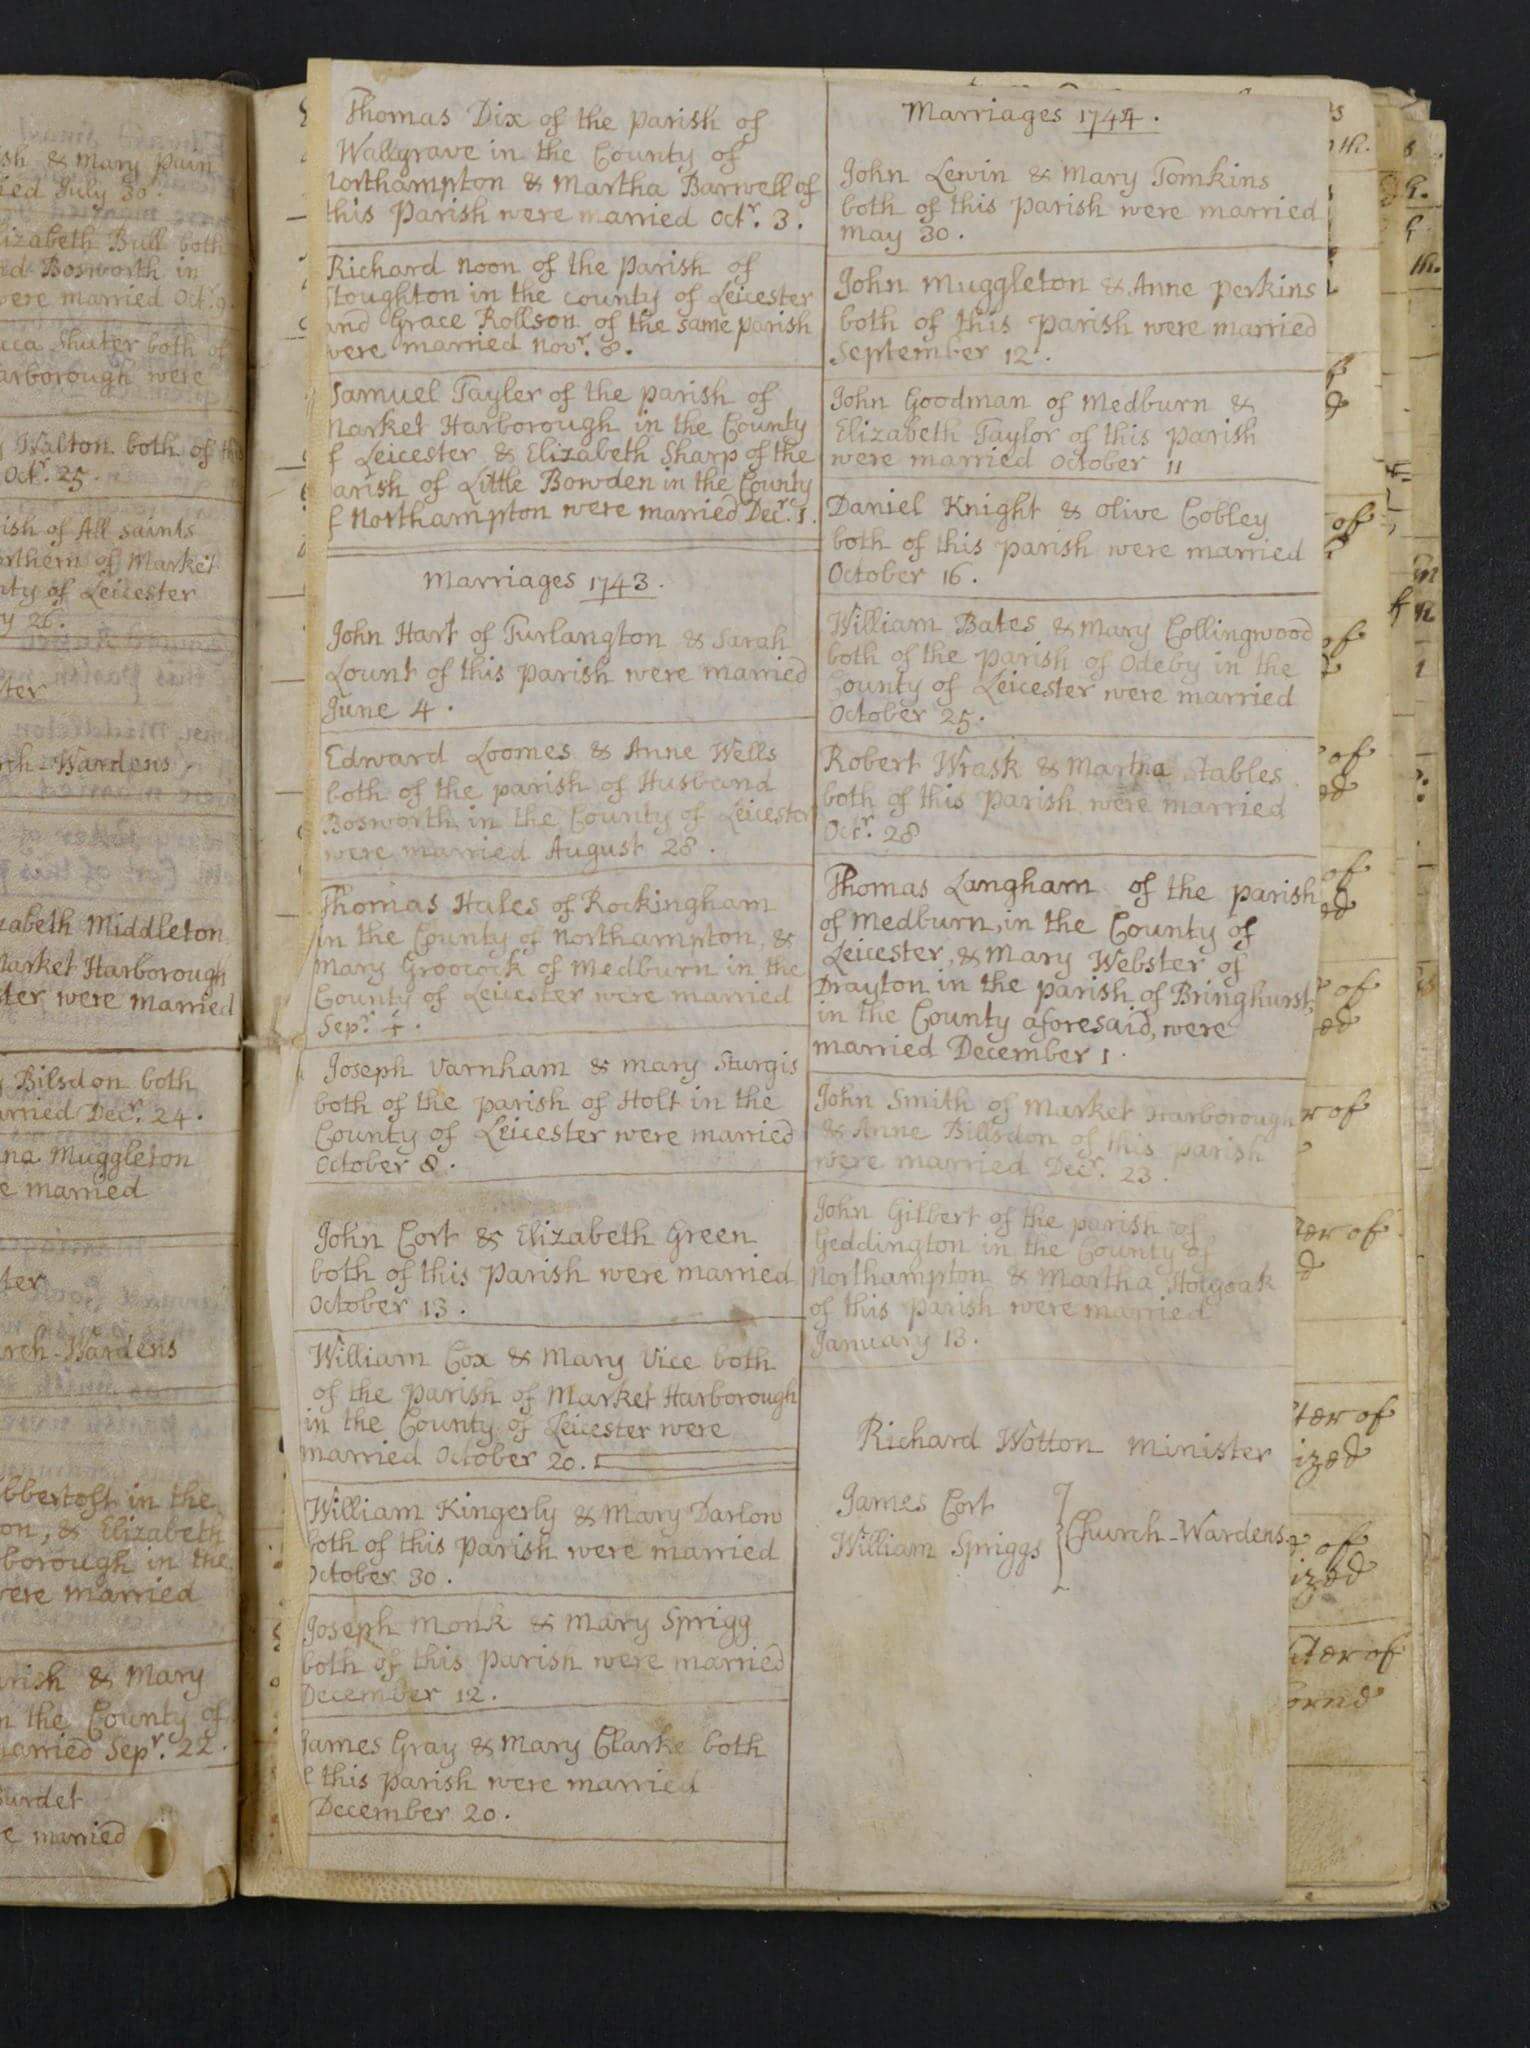 ish & Mary Pain
ied July 30.
lizabeth Bull both
nd Bosworth in
were married Octr. 9.
cca Shuter both of
arborough were
Walton both of this
Octr. 25.
ish of All Saints
orthern of Market
nty of Leicester
y 26.
ter
rch-Wardens
zabeth Middleton
Market Harborough
ster were married
y Bilsdon both
arried Decr. 24.
na Muggleton
e married
ter
rch-Wardens
bbertoft in the
on, & Elizabeth
borough in the
were married
arish & Mary
n the County of
arried Sepr. 22.
Burdet
e married
Thomas Dix of the Parish of
Wallgrave in the County of
Northampton & Martha Barwell of
this Parish were married Octr. 3.
Richard Noon of the Parish of
Stoughton in the County of Leicester
and Grace Rollson of the same parish
were married Novr. 8.
Samuel Tayler of the parish of
Market Harborough in the County
f Leicester & Elizabeth Sharp of the
arish of Little Bowden in the County
f Northampton were married Decr. 1.
Marriages 1743.
John Hart of Turlangton & Sarah
Lount of this Parish were married
June 4.
Edward Loomes & Anne Wells
both of the parish of Husband
Bosworth in the County of Leicester
were married August 28.
Thomas Hales of Rockingham
in the County of Northampton, &
Mary Groocock of Medburn in the
County of Leicester were married
Sepr. 4.
Joseph Varnham & Mary Sturgis
both of the parish of Holt in the
County of Leicester were married
October 8.
John Cort & Elizabeth Green
both of this Parish were married
October 13.
William Cox & Mary Vice both
of the Parish of Market Harborough
in the County of Leicester were
married October 20.
William Kingerly & Mary Darlow
both of this Parish were married
October 30.
Joseph Monk & Mary Sprigg
both of this Parish were married
December 12.
James Gray & Mary Clarke both
f this Parish were married
December 20.
Marriages 1744.
John Lewin & Mary Tomkins
both of this Parish were married
May 30.
John Muggleton & Anne Perkins
both of this Parish were married
September 12.
John Goodman of Medburn &
Elizabeth Taylor of this Parish
were married October 11
Daniel Knight & Olive Cobley
both of this parish were married
October 16.
William Bates & Mary Collingwood
both of the Parish of Odeby in the
County of Leicester were married
October 25.
Robert Wrask & Martha Stables
both of this Parish were married
Octr. 28
Thomas Langham of the parish
of Medburn, in the County of
Leicester, & Mary Webster of
Drayton in the parish of Bringhurst,
in the County aforesaid, were
married December 1.
John Smith of Market Harborough
& Anne Billsdon of this parish
were married Decr. 23.
John Gilbert of the parish of
Geddington in the County of
Northampton & Martha Holyoak
of this Parish were married
January 13.
Richard Wotton Minister
James Cort
William Spriggs } Church-Wardens
th.
of
of
of
of
of
r of
ter of
ter of
ized
of
ized
hter of